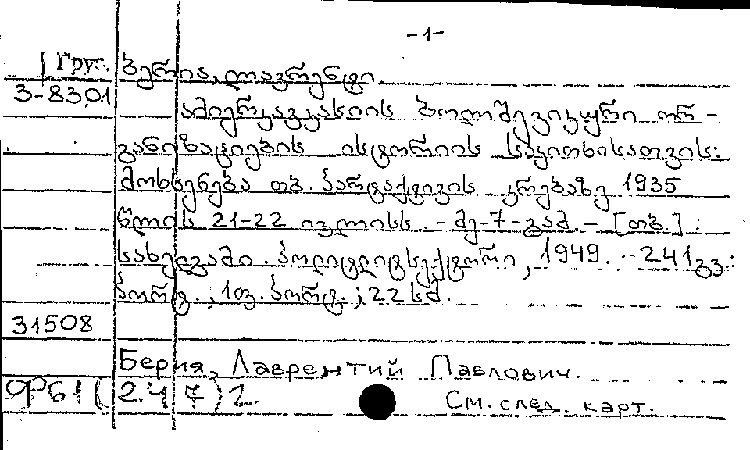 -1-
Груз. ბერია, ლავრენტი.
3-8301
ამიერკავკასიის ბოლშევიკური ორ-
განიზაციების ისტორიის საკითხისათვის:
მოხსენება თბ. პარტაქტივის კრებაზე 1935
წლის 21-22 ივლისს. - მე-7-გამ. - [თბ.]:
სახელგამი. პოლიტლიტსექტორი, 1949. - 241 გვ:
პორტ.; 1 ფ. პორტ.; 22 სმ.
31508
Берия, Лаврентий Павлович.
961(2.47)1. См. след. карт.